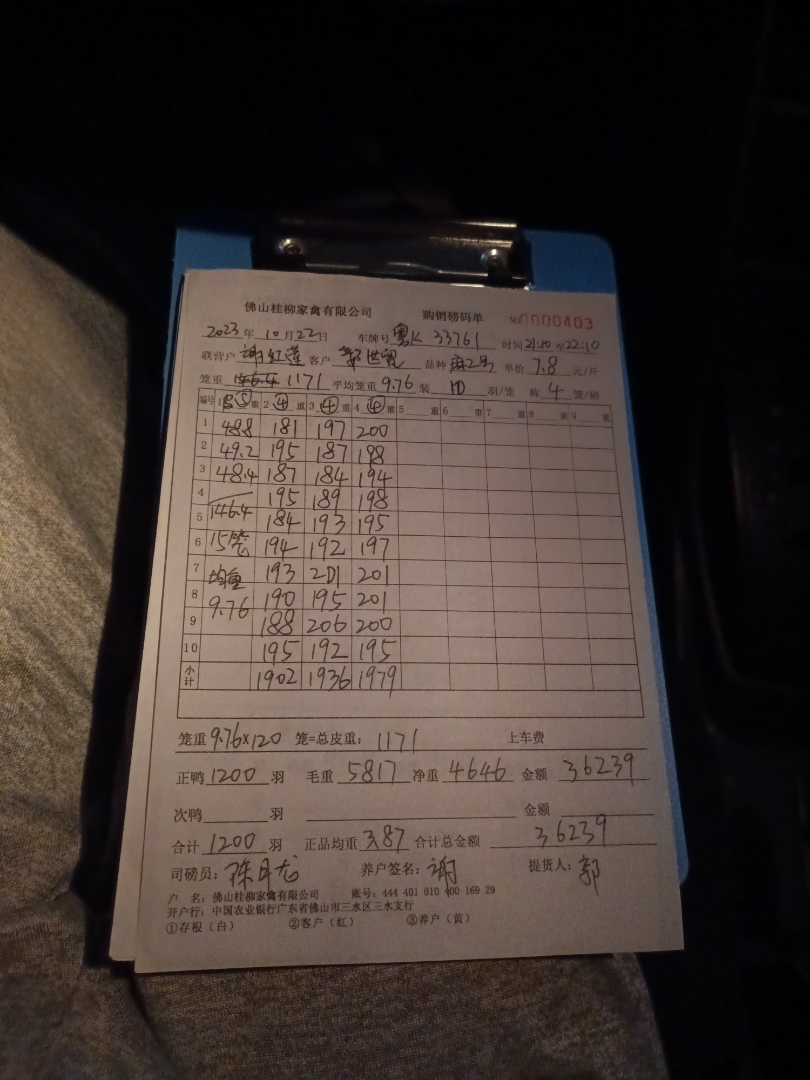 佛山桂柳家禽有限公司 购销磅码单 No 0000403
2023年10月22日 车牌号 粤K 33761 时间 21:10 至 22:10
联营户 谢红莲 客户 郭世 品种 麻2号 单价 7.8 元/斤
笼重 146.4 1171 平均笼重 9.76 装 10 羽/笼 称 4 笼/磅
编号 1 ⑤ 重 2 ④ 重 3 ④ 重 4 ④ 重 5 重 6 重 7 重 8 重 9 重
1 48.8 181 197 200
2 49.2 195 187 198
3 48.4 187 184 194
4 195 189 198
5 146.4 184 193 195
6 15笼 194 192 197
7 均重 193 201 201
8 9.76 190 195 201
9 188 206 200
10 195 192 195
小计 1902 1936 1979
笼重 9.76×120 笼=总皮重: 1171 上车费
正鸭 1200 羽 毛重 5817 净重 4646 金额 36239
次鸭 羽 金额
合计 1200 羽 正品均重 3.87 合计总金额 36239
司磅员: 陈月龙 养户签名: 谢 提货人: 郭
户 名: 佛山桂柳家禽有限公司 账号: 444 401 010 400 169 29
开户行: 中国农业银行广东省佛山市三水区三水支行
①存根(白) ②客户(红) ③养户(黄)